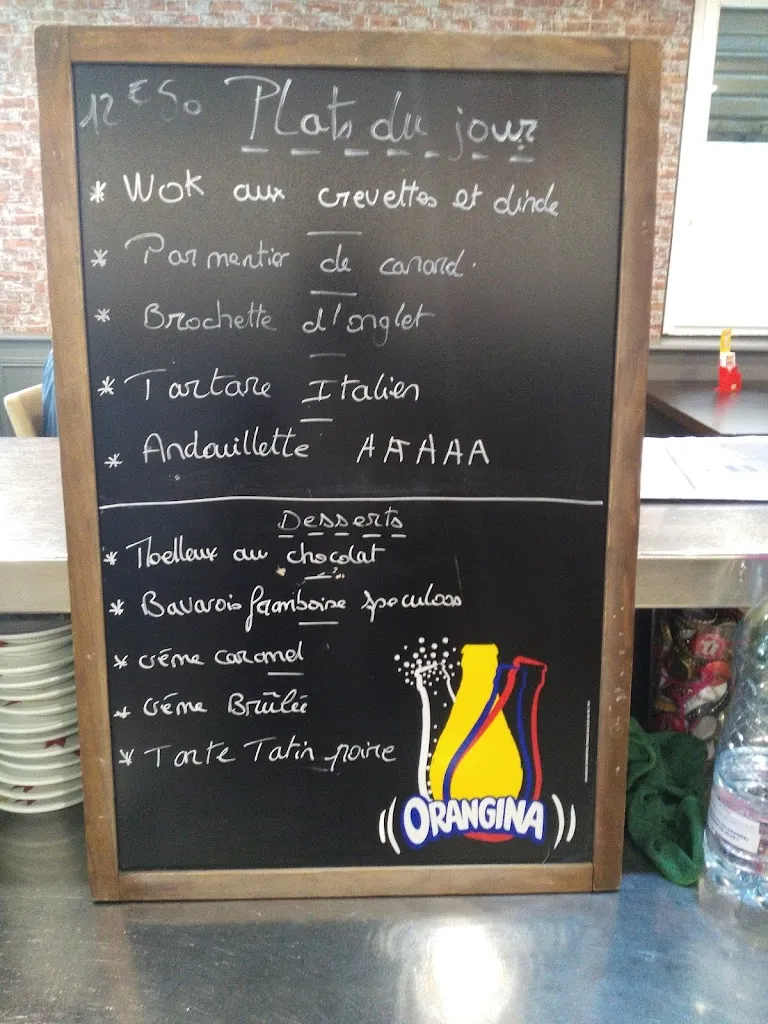 12€50 Plats du jour
* Wok aux crevettes et dinde
* Parmentier de canard.
* Brochette d'onglet
* Tartare Italien
* Andouillette AAAAA
Desserts
* Moelleux au chocolat
* Bavarois framboise speculoos
* Créme caramel
* Créme Brûlée
* Tarte Tatin poire
ORANGINA